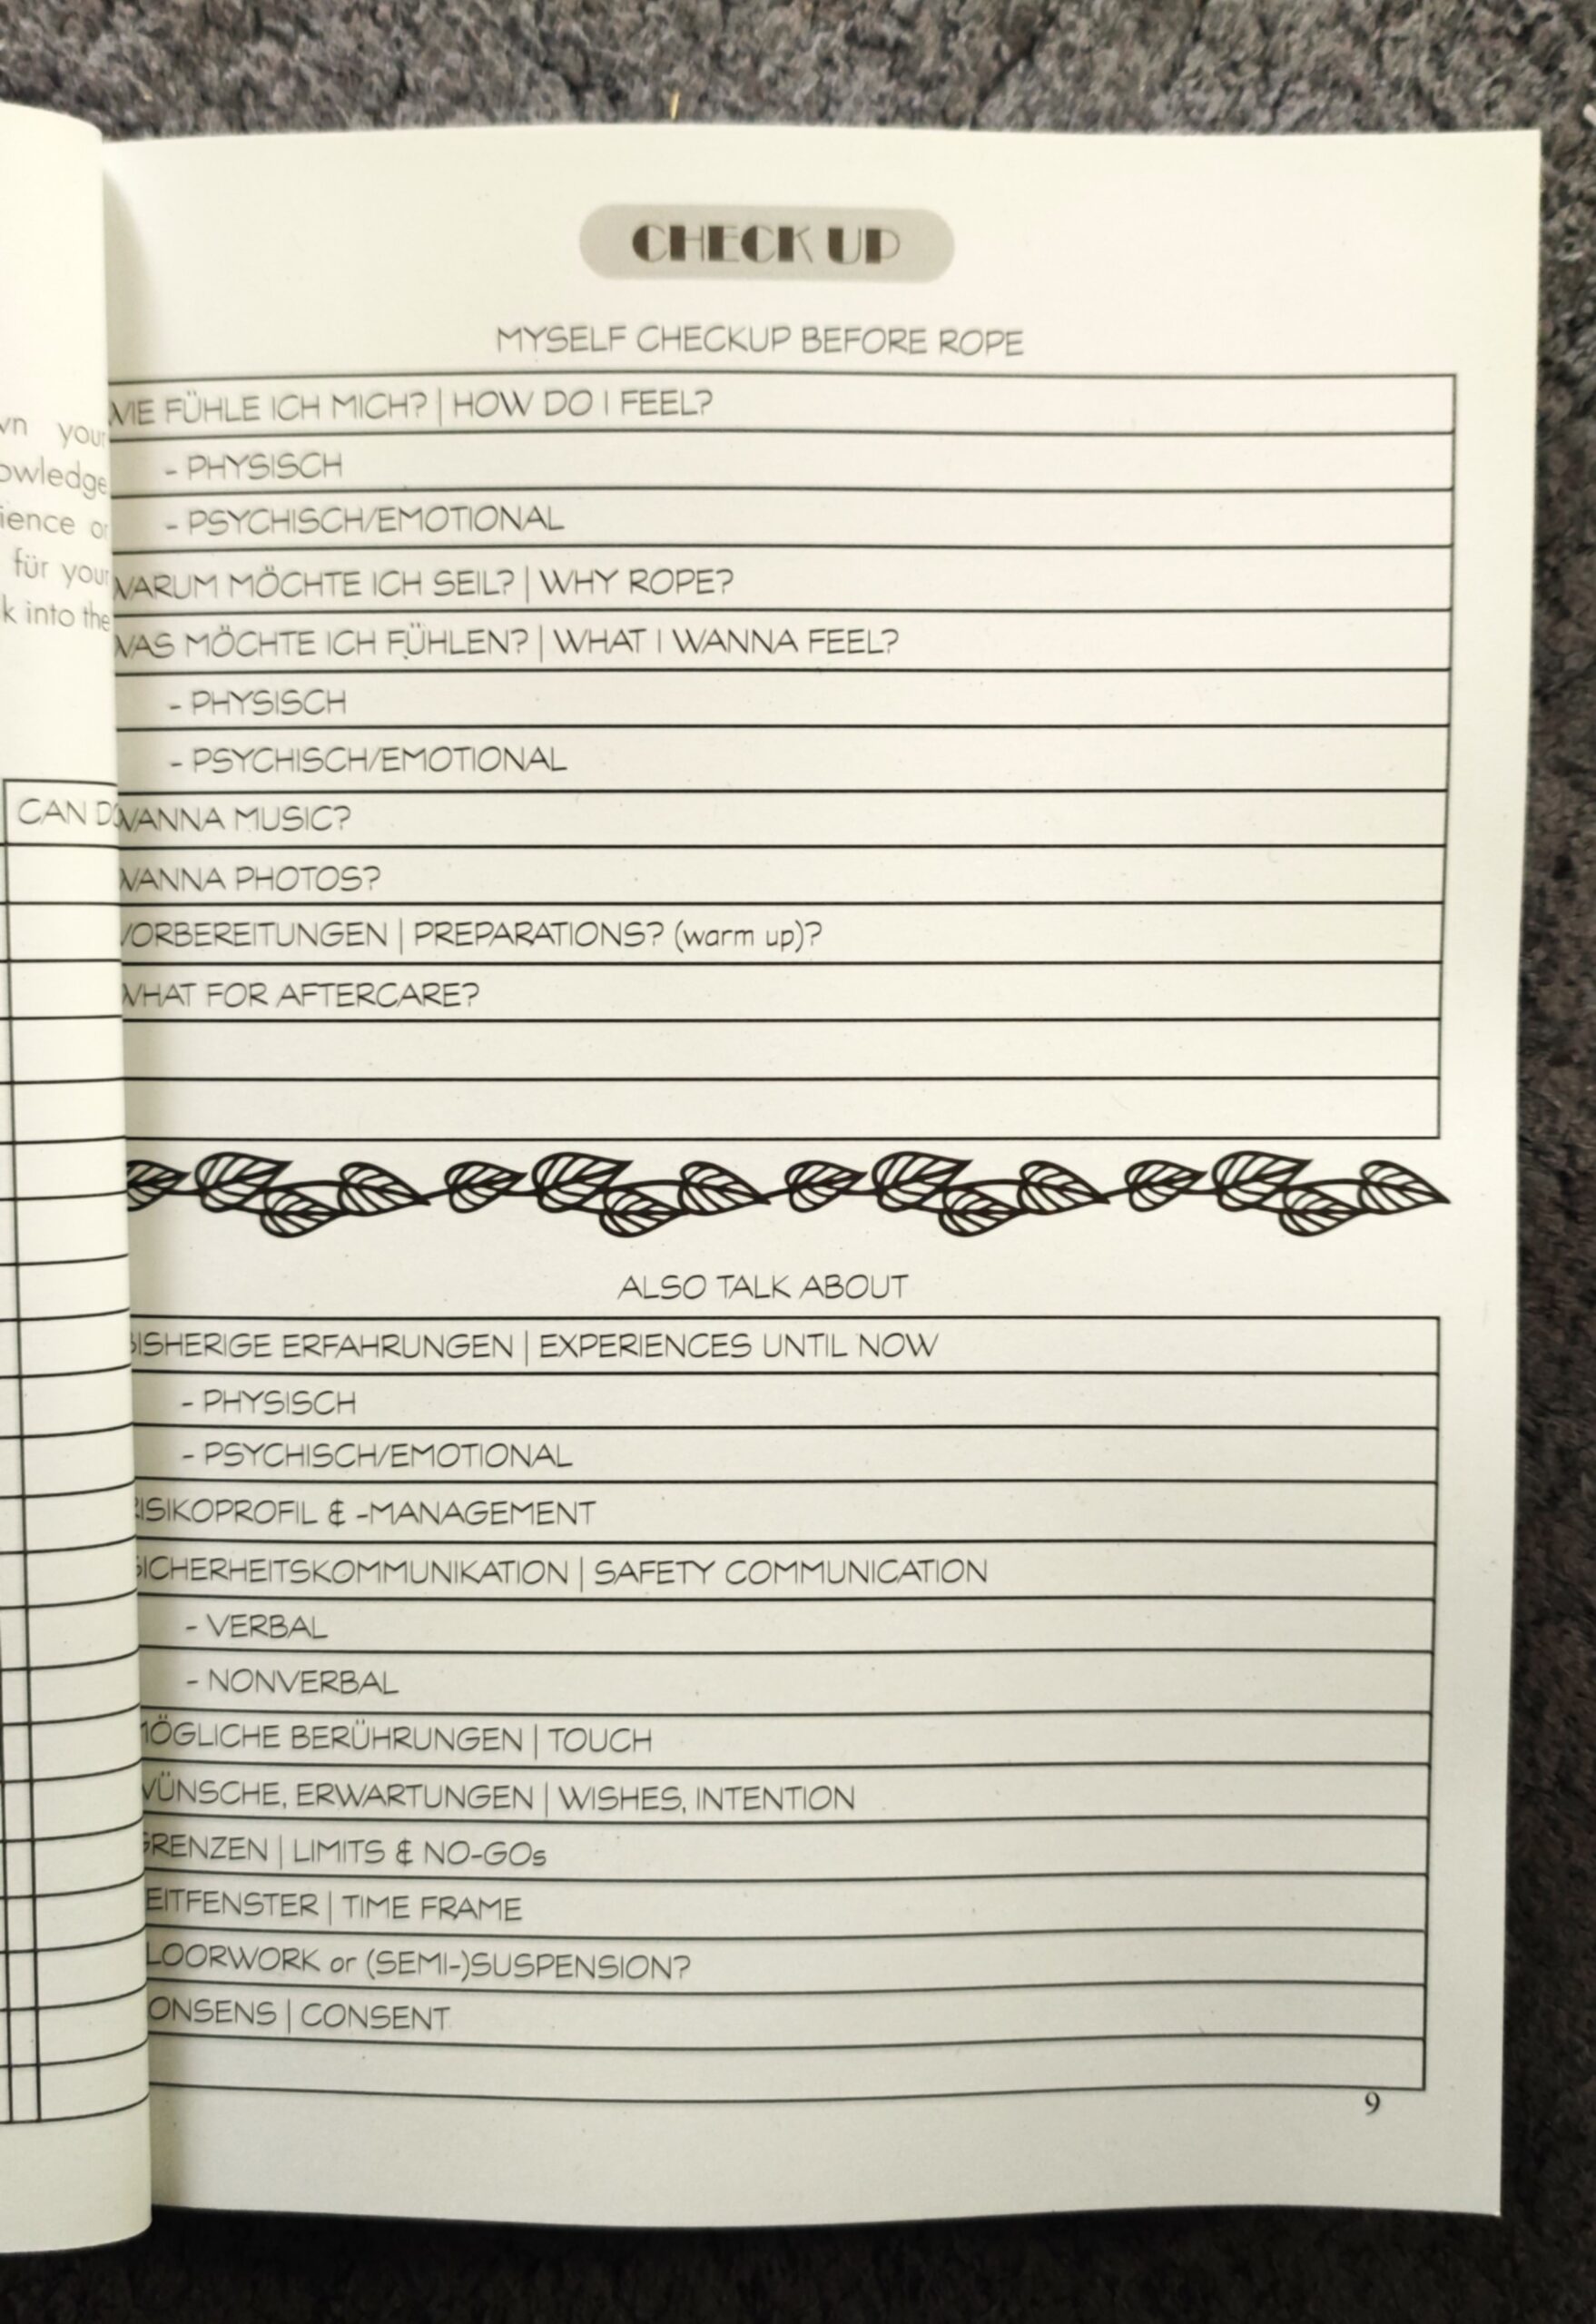 CHECK UP
MYSELF CHECKUP BEFORE ROPE
WIE FÜHLE ICH MICH? | HOW DO I FEEL?
- PHYSISCH
- PSYCHISCH/EMOTIONAL
WARUM MÖCHTE ICH SEIL? | WHY ROPE?
WAS MÖCHTE ICH FÜHLEN? | WHAT I WANNA FEEL?
- PHYSISCH
- PSYCHISCH/EMOTIONAL
WANNA MUSIC?
WANNA PHOTOS?
VORBEREITUNGEN | PREPARATIONS? (warm up)?
WHAT FOR AFTERCARE?
ALSO TALK ABOUT
BISHERIGE ERFAHRUNGEN | EXPERIENCES UNTIL NOW
- PHYSISCH
- PSYCHISCH/EMOTIONAL
RISIKOPROFIL & -MANAGEMENT
SICHERHEITSKOMMUNIKATION | SAFETY COMMUNICATION
- VERBAL
- NONVERBAL
MÖGLICHE BERÜHRUNGEN | TOUCH
WÜNSCHE, ERWARTUNGEN | WISHES, INTENTION
GRENZEN | LIMITS & NO-GOs
EITFENSTER | TIME FRAME
LOORWORK or (SEMI-)SUSPENSION?
ONSENS | CONSENT
9
your
owledge
ience or
für your
k into the
CAN DO